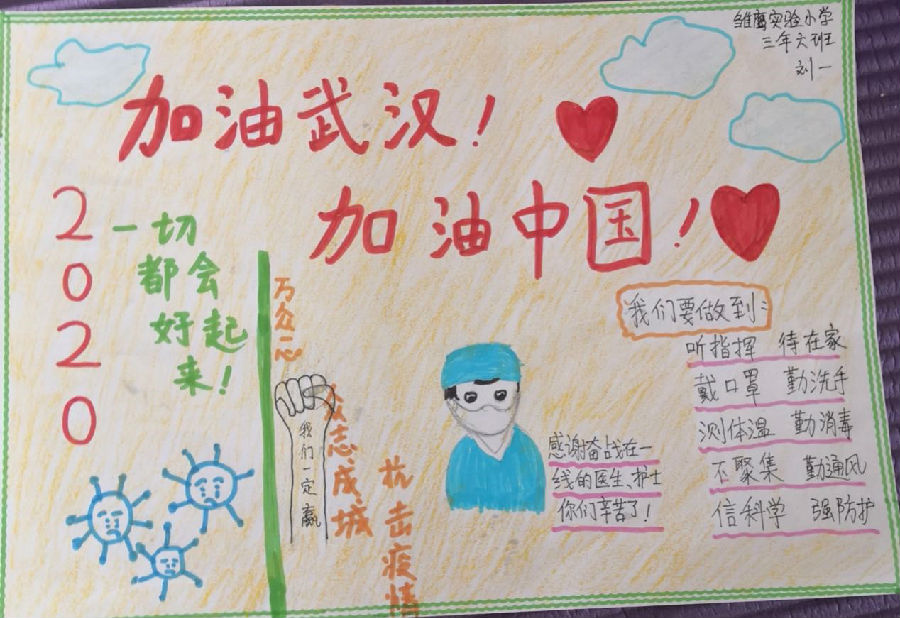 雏鹰实验小学
三年六班
刘一
加油武汉!
加油中国!
2020
一切
都会
好起
来!
万众一心
众志成城
抗击疫情
我们一定赢
感谢奋战在一
线的医生、护士
你们辛苦了!
我们要做到:
听指挥 待在家
戴口罩 勤洗手
测体温 勤消毒
不聚集 勤通风
信科学 强防护